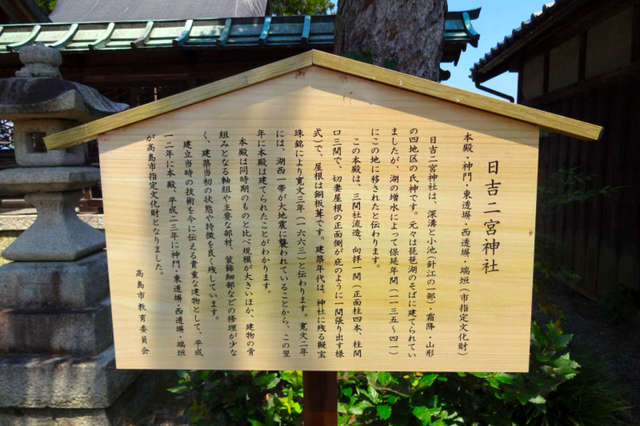 日吉二宮神社
本殿・神門・東透塀・西透塀・瑞垣（市指定文化財）
日吉二宮神社は、深溝と小池（針江の一部）・霜降・山形
の四地区の氏神です。元々は琵琶湖のそばに建てられてい
ましたが、湖の増水によって保延年間（一一三五〜四一）
にこの地に移されたと伝わります。
この本殿は、三間社流造、向拝一間（正面柱四本、柱間
口三間で、切妻屋根の正面側が庇のように一間張り出す様
式）で、屋根は銅板葺です。建築年代は、神社に残る擬宝
珠銘により寛文三年（一六六三）と伝わります。寛文二年
には、湖西一帯が大地震に襲われていることから、この翌
年に本殿は建てられたことがわかります。
本殿は同時期のものと比べ規模が大きいほか、建物の骨
組みとなる軸組や主要な部材、装飾細部などの修理が少な
く、建築当初の状態や特徴を良く残しています。
建立当時の技術を今に伝える貴重な建物として、平成
一二年に本殿、平成二三年に神門・東透塀・西透塀・瑞垣
が高島市指定文化財となりました。
高島市教育委員会